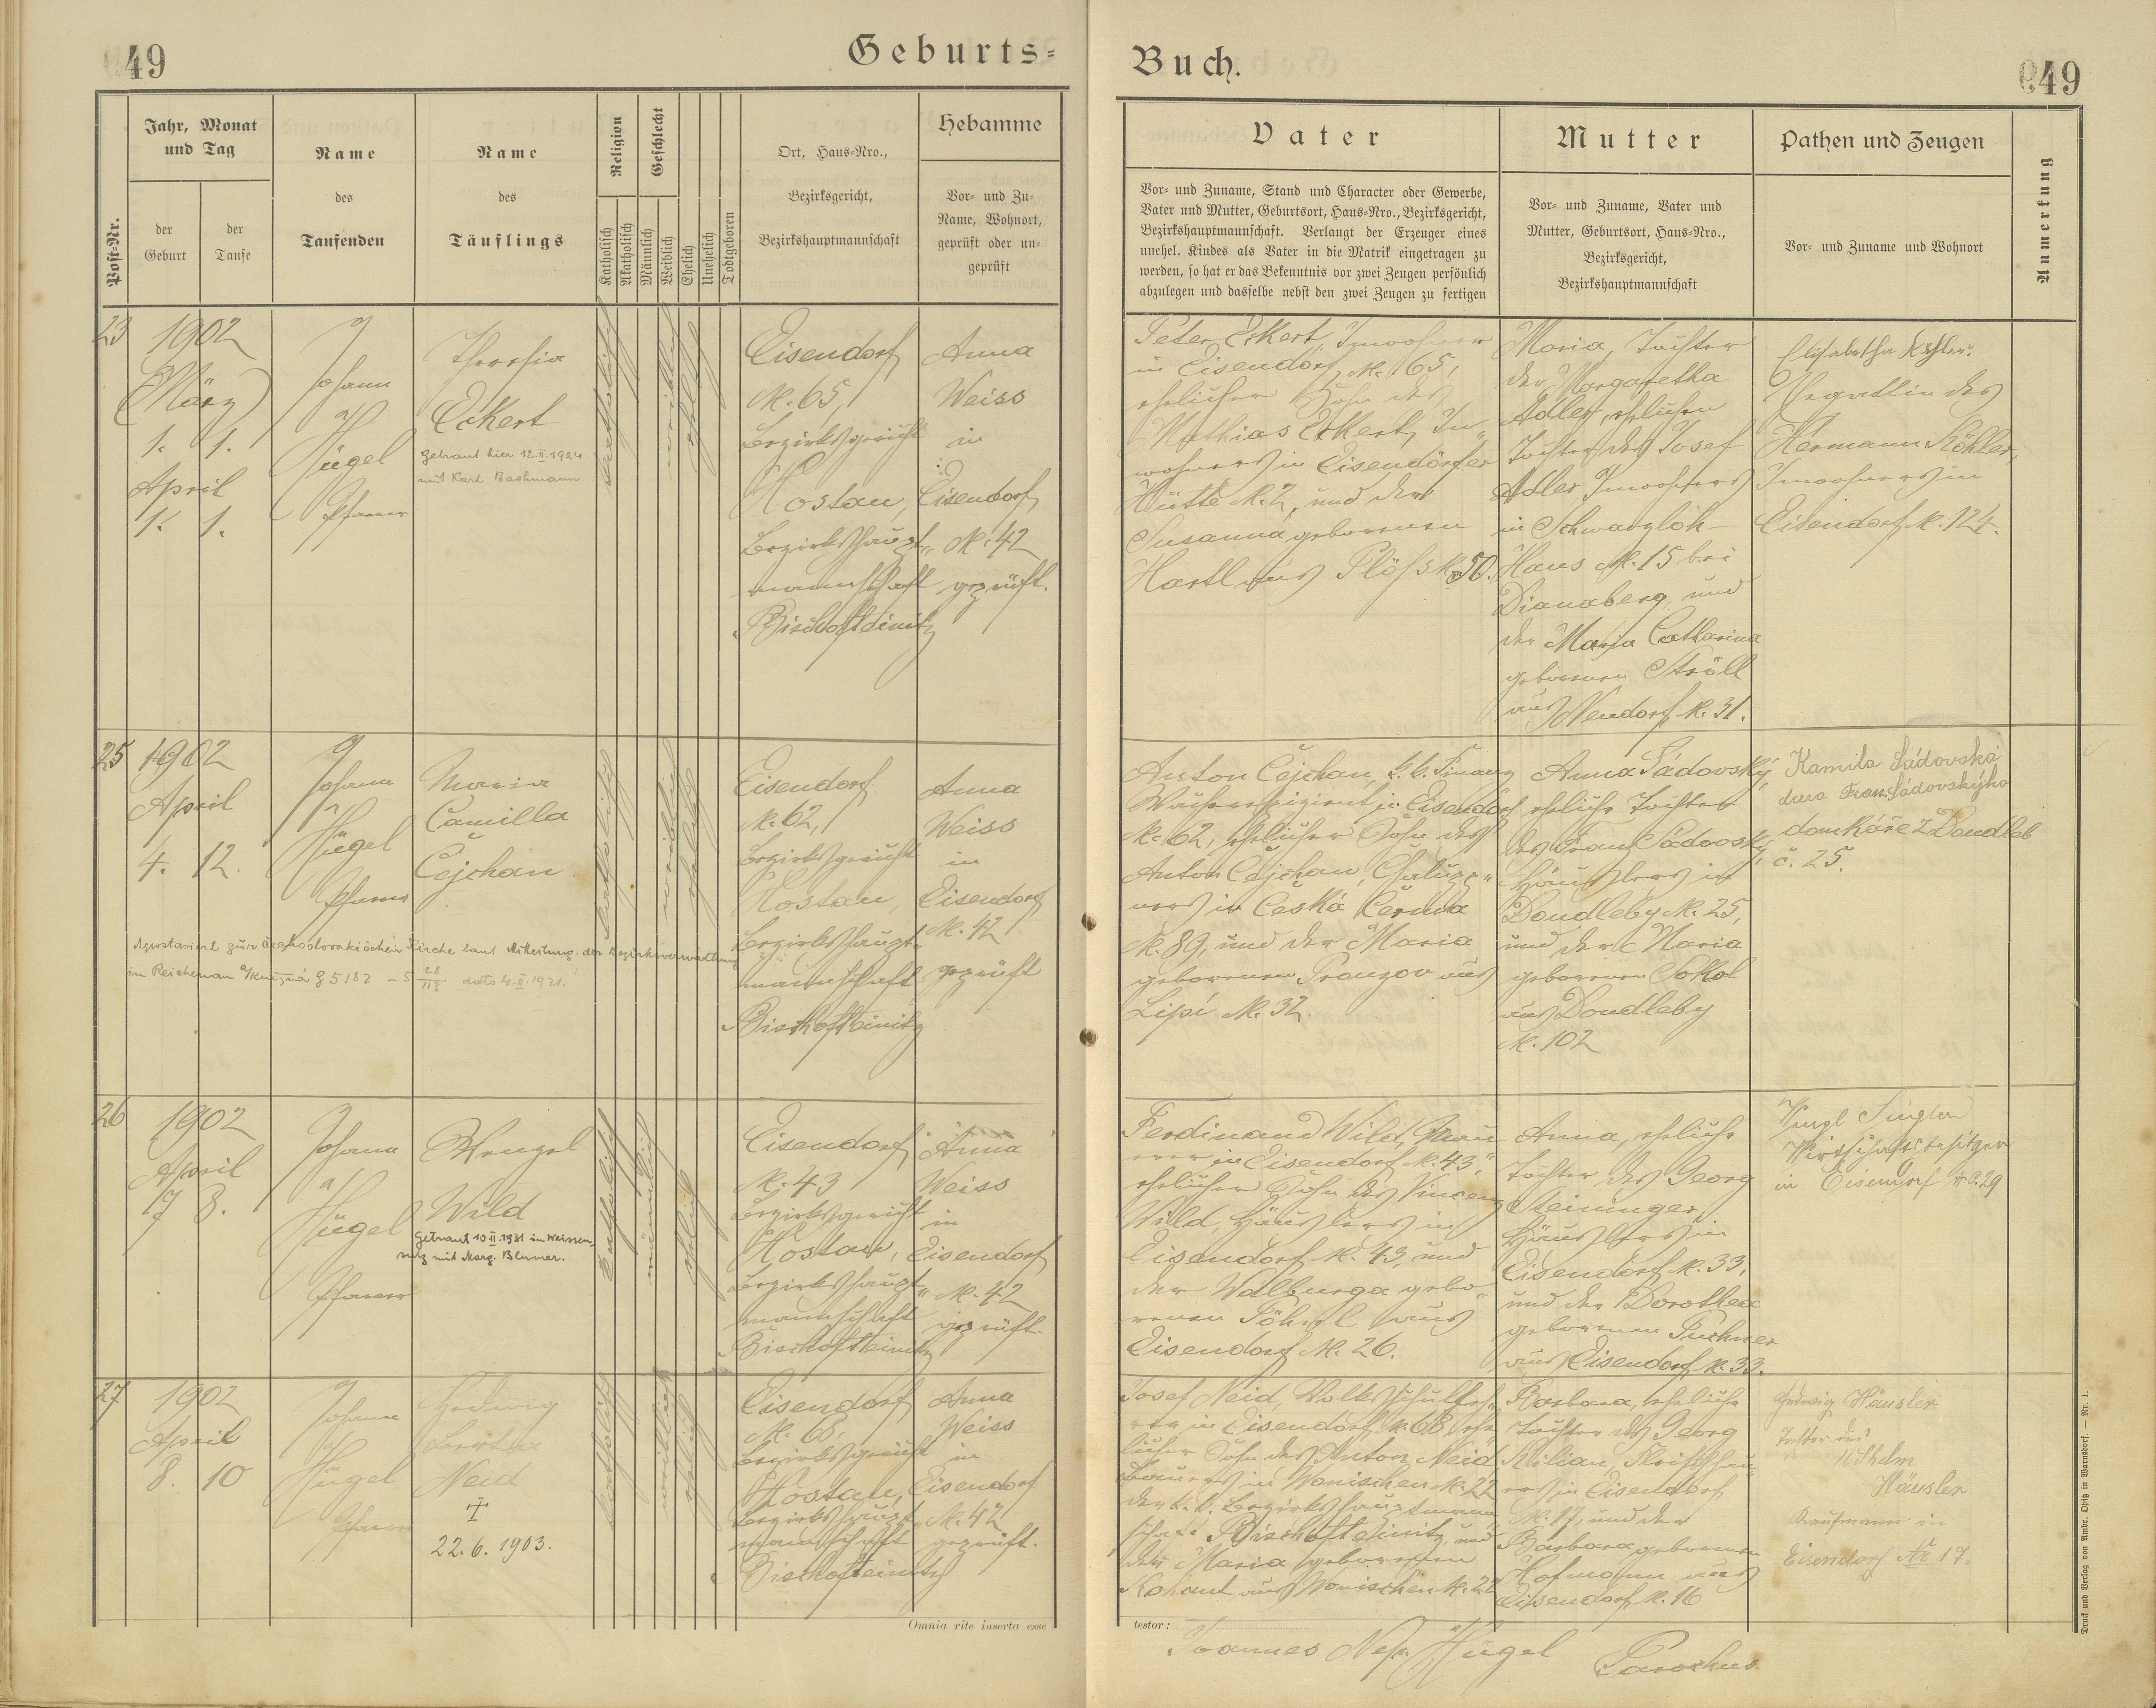 49
Geburts-
Buch.
49
Post-Nr.
Jahr, Monat
und Tag
der
Geburt
der
Taufe
Name
des
Taufenden
Name
des
Täuflings
Religion
Katholisch
Akatholisch
Geschlecht
Männlich
Weiblich
Ehelich
Unehelich
Todtgeboren
Ort, Haus-Nro.,
Bezirksgericht,
Bezirkshauptmannschaft
Hebamme
Vor- und Zu-
Name, Wohnort,
geprüft oder un-
geprüft
Vater
Vor- und Zuname, Stand und Character oder Gewerbe,
Vater und Mutter, Geburtsort, Haus-Nro., Bezirksgericht,
Bezirkshauptmannschaft. Verlangt der Erzeuger eines
unehel. Kindes als Vater in die Matrik eingetragen zu
werden, so hat er das Bekenntnis vor zwei Zeugen persönlich
abzulegen und dasselbe nebst den zwei Zeugen zu fertigen
Mutter
Vor- und Zuname, Vater und
Mutter, Geburtsort, Haus-Nro.,
Bezirksgericht,
Bezirkshauptmannschaft
Pathen und Zeugen
Vor- und Zuname und Wohnort
Anmerkung
23
1902
März
1. 1.
April
1. 1.
Johann
Hügel
Pfarrer
Theresia
Eckert
getraut hier 12.II.1924
mit Karl Bachmann
katholisch
weiblich
ehelich
Eisendorf
N. 65,
Bezirksgericht
Hostau,
Bezirkshaupt-
mannschaft
Bischofteinitz
Anna
Weiss
in
Eisendorf
N. 42
geprüft.
Peter Eckert, Inwohner
in Eisendorf N. 65,
ehelicher Sohn des
Mathias Eckert, In-
wohners in Eisendörfer
Hütte N. 2, und der
Susanna geborenen
Hartl aus Plöß N. 50.
Maria, Tochter
der Margaretha
Adler, ehelichen
Tochter des Josef
Adler Inwohners
in Schwarzloh-
Haus N. 15 bei
Dianaberg und
der Maria Catharina
geborenen Ströll
aus Neudorf N. 31.
Elisabetha Köhler,
Gattin des
Hermann Köhler,
Inwohners in
Eisendorf N. 124.
25
1902
April
4. 12.
Johann
Hügel
Pfarrer
Maria
Camilla
Čejchan
Apostasiert zur čechoslovakischen Kirche laut Mitteilung der Bezirksverwaltung
in Reichenau a/Knězna 5182 – 5 28/112 ddto 4.II.1921.
katholisch
weiblich
ehelich
Eisendorf
N. 62,
Bezirksgericht
Hostau,
Bezirkshaupt-
mannschaft
Bischofteinitz
Anna
Weiss
in
Eisendorf
N. 42
geprüft
Anton Čejchan, k. k. Finanz
in Eisendorf
N. 62, ehelicher Sohn des
Anton Čejchan,
in Česká Čermna
N. 89, und der Maria
geborenen aus
Lipi N. 32.
Anna Sádovský,
eheliche Tochter
des Franz Sádovský,
Häuslers in
Doudleby N. 25,
und der Maria
geborenen Sokol
aus Doudleby
N. 102
Kamila Sádovská
dcera Fran. Sádovskýho
domkáře z Doudleb
č. 25.
26
1902
April
7. 8.
Johann
Hügel
Pfarrer
Wenzel
Wild
Getraut 10.II.1931 in Weissen-
sulz mit Marg. Blumer.
katholisch
männlich
ehelich
Eisendorf
N. 43
Bezirksgericht
Hostau,
Bezirkshaupt-
mannschaft
Bischofteinitz
Anna
Weiss
in
Eisendorf
N. 42
geprüft
Ferdinand Wild, Mau-
rer in Eisendorf N. 43,
ehelicher Sohn des Vincenz
Wild, Häuslers in
Eisendorf N. 43, und
der Walburga gebo-
renen aus
Eisendorf N. 26.
Anna, eheliche
Tochter des Georg
Steininger,
Häuslers in
Eisendorf N. 33,
und der Dorothea
geborenen Puchner
aus Eisendorf N. 33.
Wirtschaftsbesitzer
in Eisendorf No. 29
27
1902
April
8. 10
Johann
Hügel
Pfarrer
Hedwig
Bertha
Neid
22.6.1903.
katholisch
weiblich
ehelich
Eisendorf
N. 68,
Bezirksgericht
Hostau,
Bezirkshaupt-
mannschaft
Bischofteinitz
Anna
Weiss
in
Eisendorf
N. 42
geprüft.
Josef Neid, Volksschulleh-
rer in Eisendorf N. 68, ehe-
licher Sohn des Anton Neid
Bauers in Wonischen N. 22
der k. k. Bezirkshauptmann-
schaft Bischofteinitz, und
der Maria geborenen
Kohaut aus Wonischen N. 22
Barbara, eheliche
Tochter des Georg
Kilian, Fleischhau-
ers in Eisendorf
N. 17, und der
Barbara geborenen
Hofmann aus
Eisendorf N. 16
Hedwig Häusler
Tochter des
Wilhelm
Häusler
Kaufmann in
Eisendorf No 17.
Omnia rite inserta esse
testor:
Joannes Nep. Hügel
Parochus
Druck und Verlag von Ambr. Opitz in Warnsdorf. — Nr. 1.